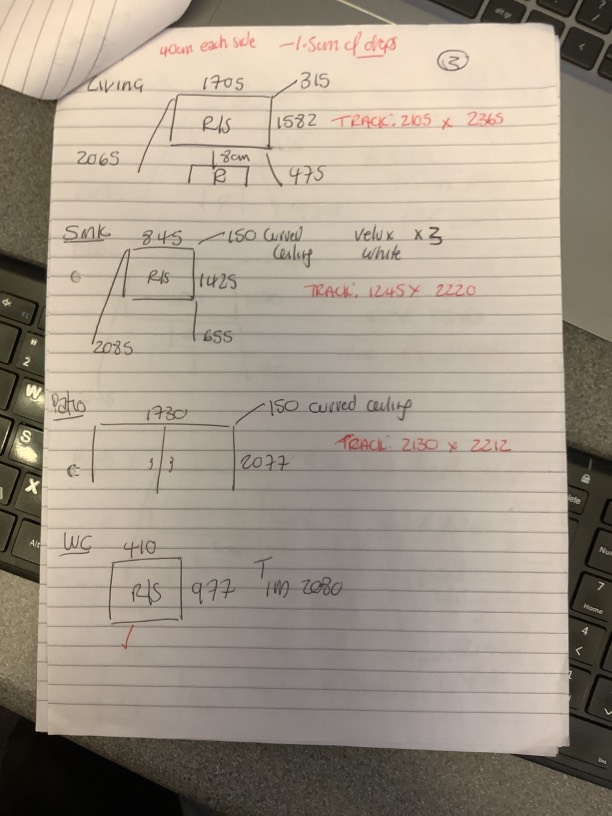 40cm each side -1.5cm of drops
3
Living 1705 315
R/S 1582 TRACK: 2105 x 2365
2065 18cm
R 475
SMK 845 150 curved ceiling velux x3 white
R/S 1425
TRACK: 1245 x 2220
2085 655
Patio 1730 150 curved ceiling
2077 TRACK 2130 x 2212
WC 410
R/S 977 T 1m 2080